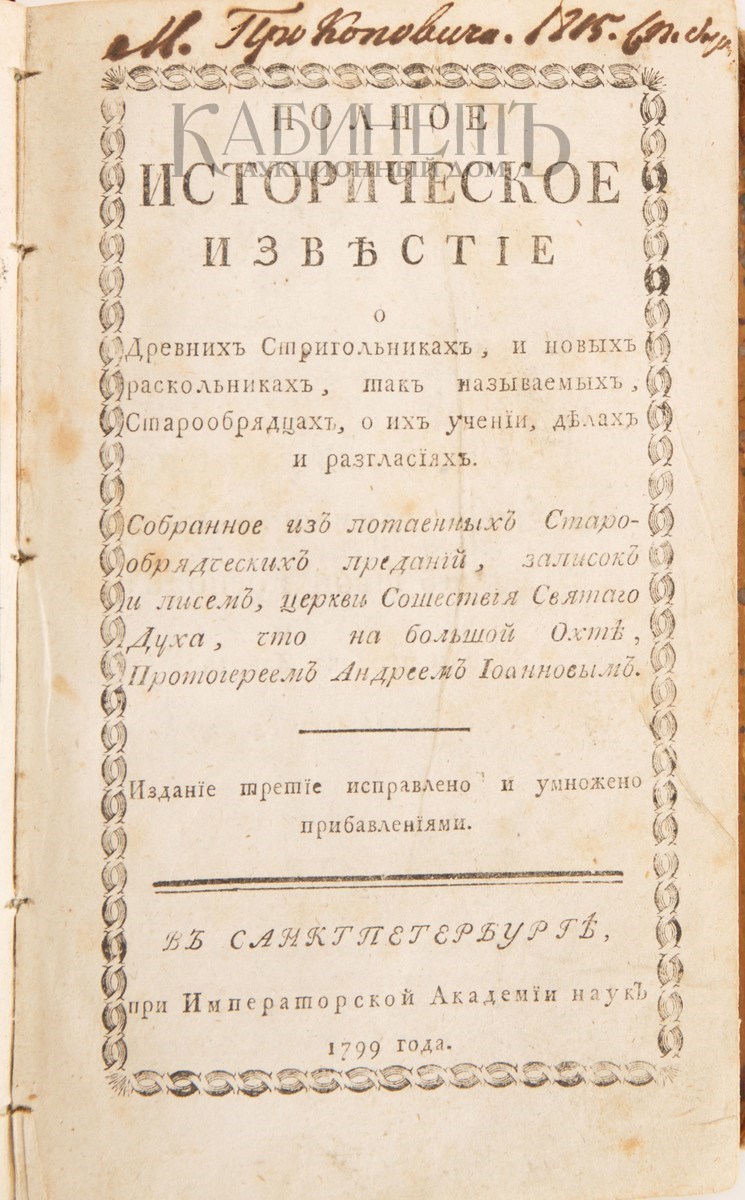 М. Прокоповича. 1815.
КАБИНЕТЪ
АУКЦИОННЫЙ ДОМ
ПОЛНОЕ
ИСТОРИЧЕСКОЕ
ИЗВѢСТІЕ
о
Древнихъ Стригольникахъ, и новыхъ
раскольникахъ, такъ называемыхъ,
Старообрядцахъ, о ихъ ученіи, дѣлахъ
и разгласіяхъ.
Собранное изъ потаенныхъ Старо-
обрядческихъ преданій, записокъ
и писемъ, церкви Сошествія Святаго
Духа, что на большой Охтѣ,
Протоіереемъ Андреемъ Іоанновымъ.
Изданіе третіе исправлено и умножено
прибавленіями.
ВЪ САНКТПЕТЕРБУРГѢ,
при Императорской Академіи наукъ
1799 года.